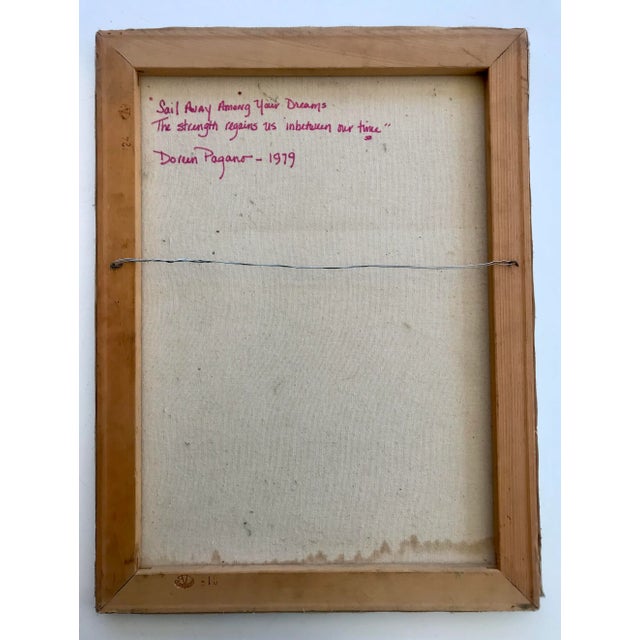 Sail Away Among Your Dreams
The strength regains us inbetween our time"
Doreen Pagano - 1979